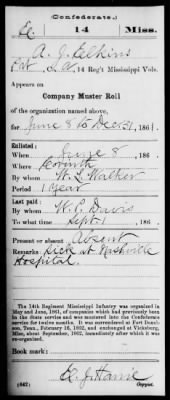 (Confederate.)
E. 14 Miss.
A. J. Elkins
Pvt, Co. 14 Reg't Mississippi Vols.
Appears on
Company Muster Roll
of the organization named above,
for June 8 to Dec 31, 1861.
Enlisted:
When June 8, 186 .
Where Corinth
By whom W. L. Walker
Period 1 year
Last paid:
By whom W. C. Davis
To what time Sept 1, 186 .
Present or absent Absent
Remarks: Sick at Nashville
Hospital.
The 14th Regiment Mississippi Infantry was organized in
May and June, 1861, of companies which had previously been
in the State service and was mustered into the Confederate
service for twelve months. It was surrendered at Fort Donelson,
Tenn., February 16, 1862, and exchanged at Vicksburg,
Miss., about September, 1862, immediately after which it was
re-organized.
Book mark:
(642)
Copyist.